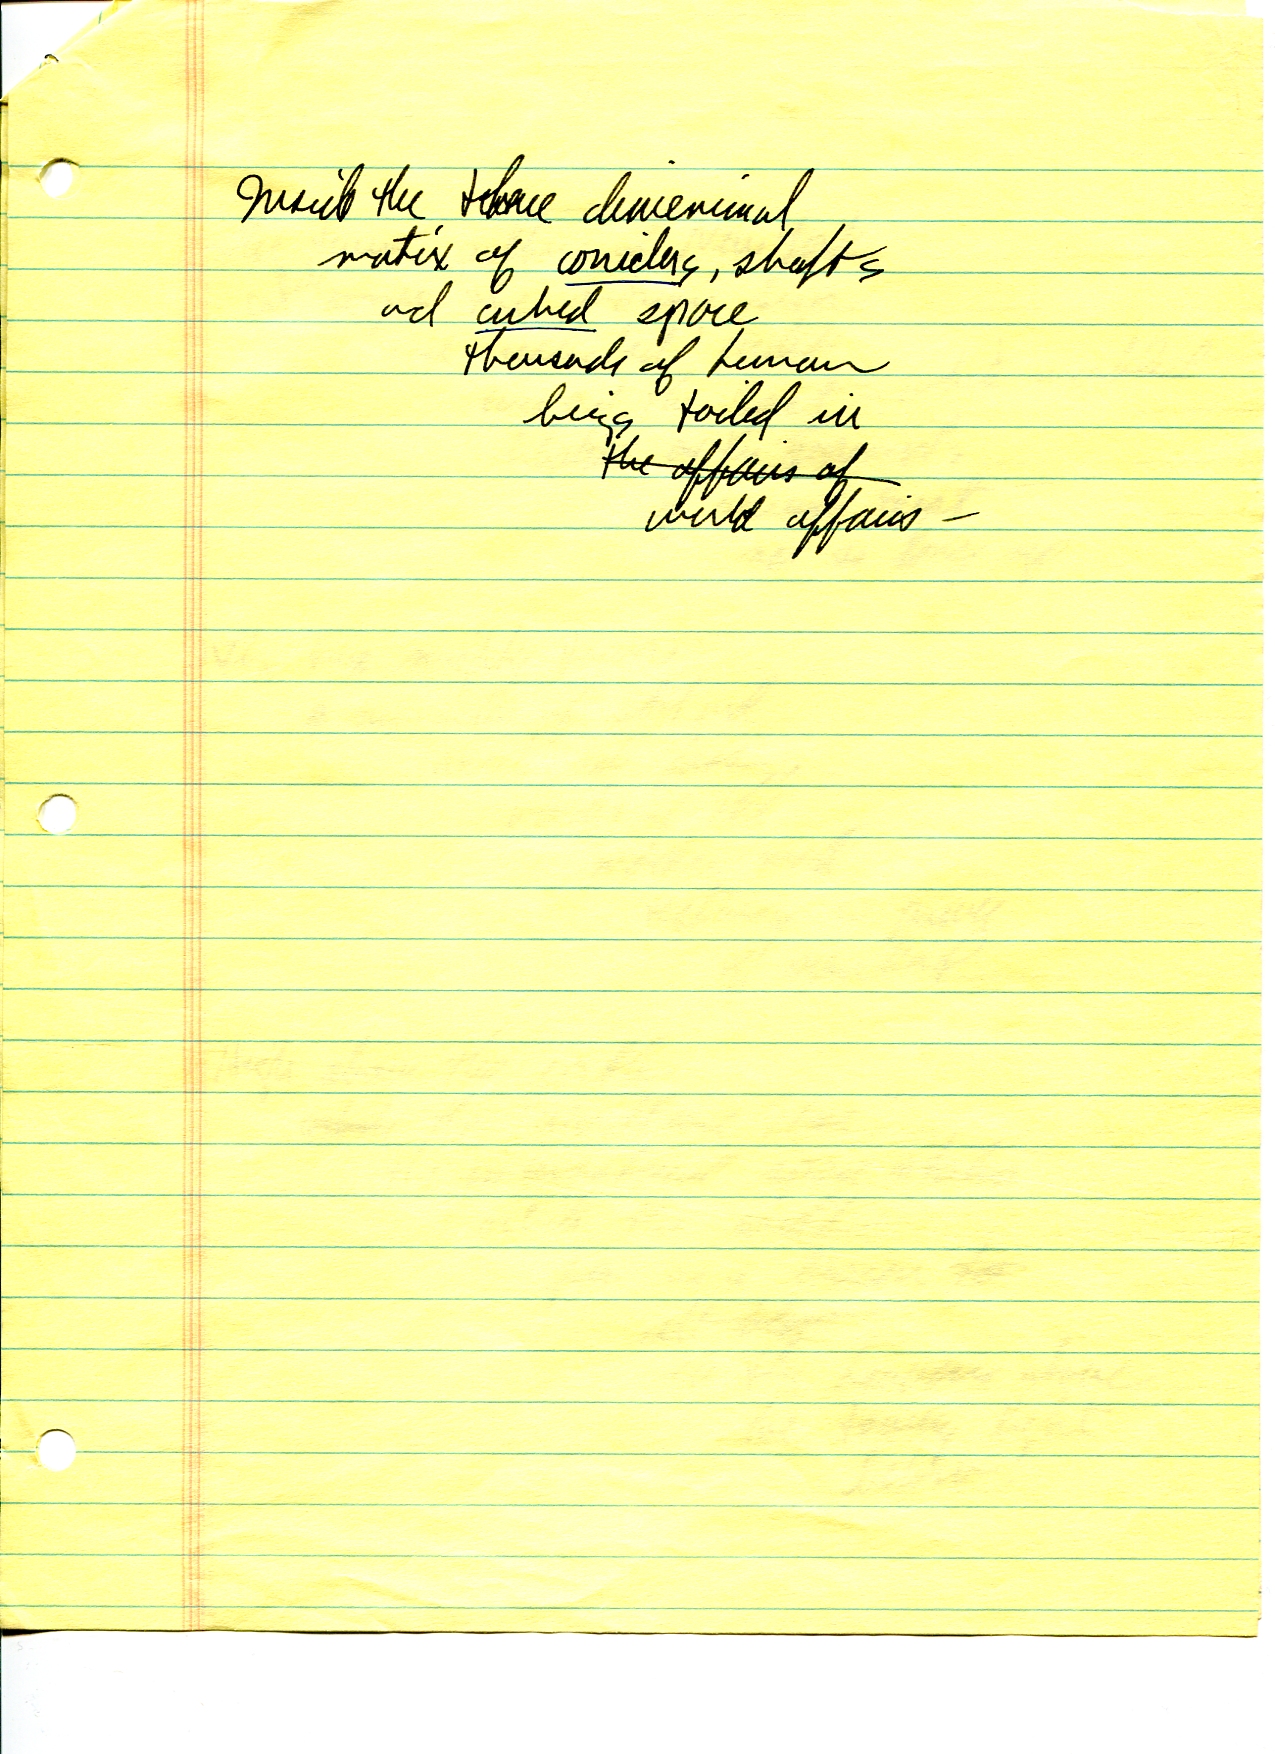 Inside the three dimensional
matrix of corriders, shafts
and cubed space
thousands of human
beings toiled in
the affairs of
world affairs –